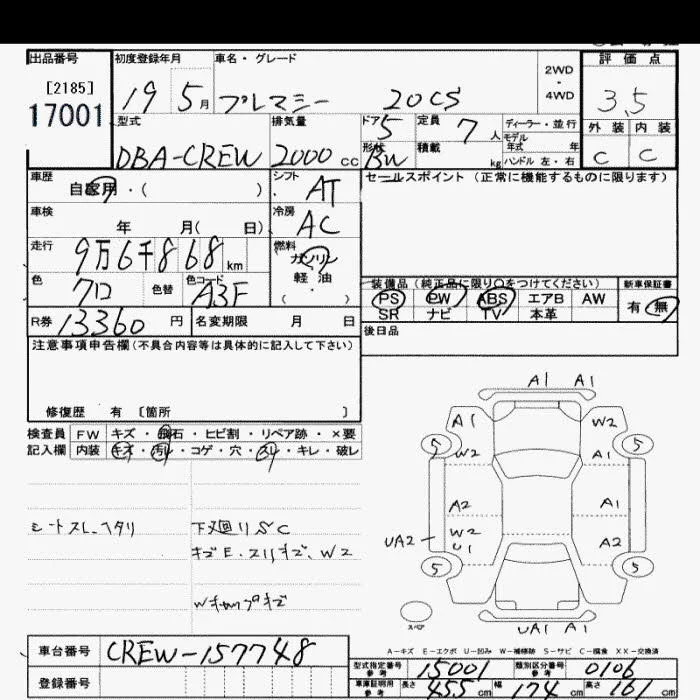 出品番号 初度登録年月 車名・グレード 2WD・4WD 評価点
[2185]
17001
19 5月 プレマシー 20CS 3.5
型式 排気量 ドア 定員 ディーラー・並行 外装 内装
DBA-CREW 2000cc 5 7人 モデル年式 年
形状 BW 積載 kg ハンドル 左・右 C C
車歴 自家用・( ) シフト AT セールスポイント (正常に機能するものに限ります)
車検 年 月( 日) 冷房 AC
走行 9万6千868km 燃料 ガソリン
軽・油
・( )
色 クロ 色替 色コード A3F 装備品(純正品に限り○をつけてください) 新車保証書
PS PW ABS エアB AW 有・無
SR ナビ TV 本革
R券 13360円 名変期限 月 日 後日品
注意事項申告欄(不具合内容等は具体的に記入して下さい)
修復歴 有 [箇所 ]
検査員 FW キズ・飛石・ヒビ割・リペア跡・×要
記入欄 内装 キズ・汚レ・コゲ・穴・スレ・キレ・破レ
シートスレ、ヘタリ 下廻りSC
キズE・スリキズ、W2
A1 A1
A1 W2
5 5
W2 A1
A2 A1
UA2 W2
U1 A2
5 5
スペア
UA1 A1
A-キズ E-エクボ U-凹み W-補修跡 S-サビ C-腐食 XX-交換済
車台番号 CREW-157748
登録番号
型式指定番号 参考 15001 類別区分番号 参考 0106
車庫証明用 参考 長さ 455cm 幅 174cm 高さ 161cm